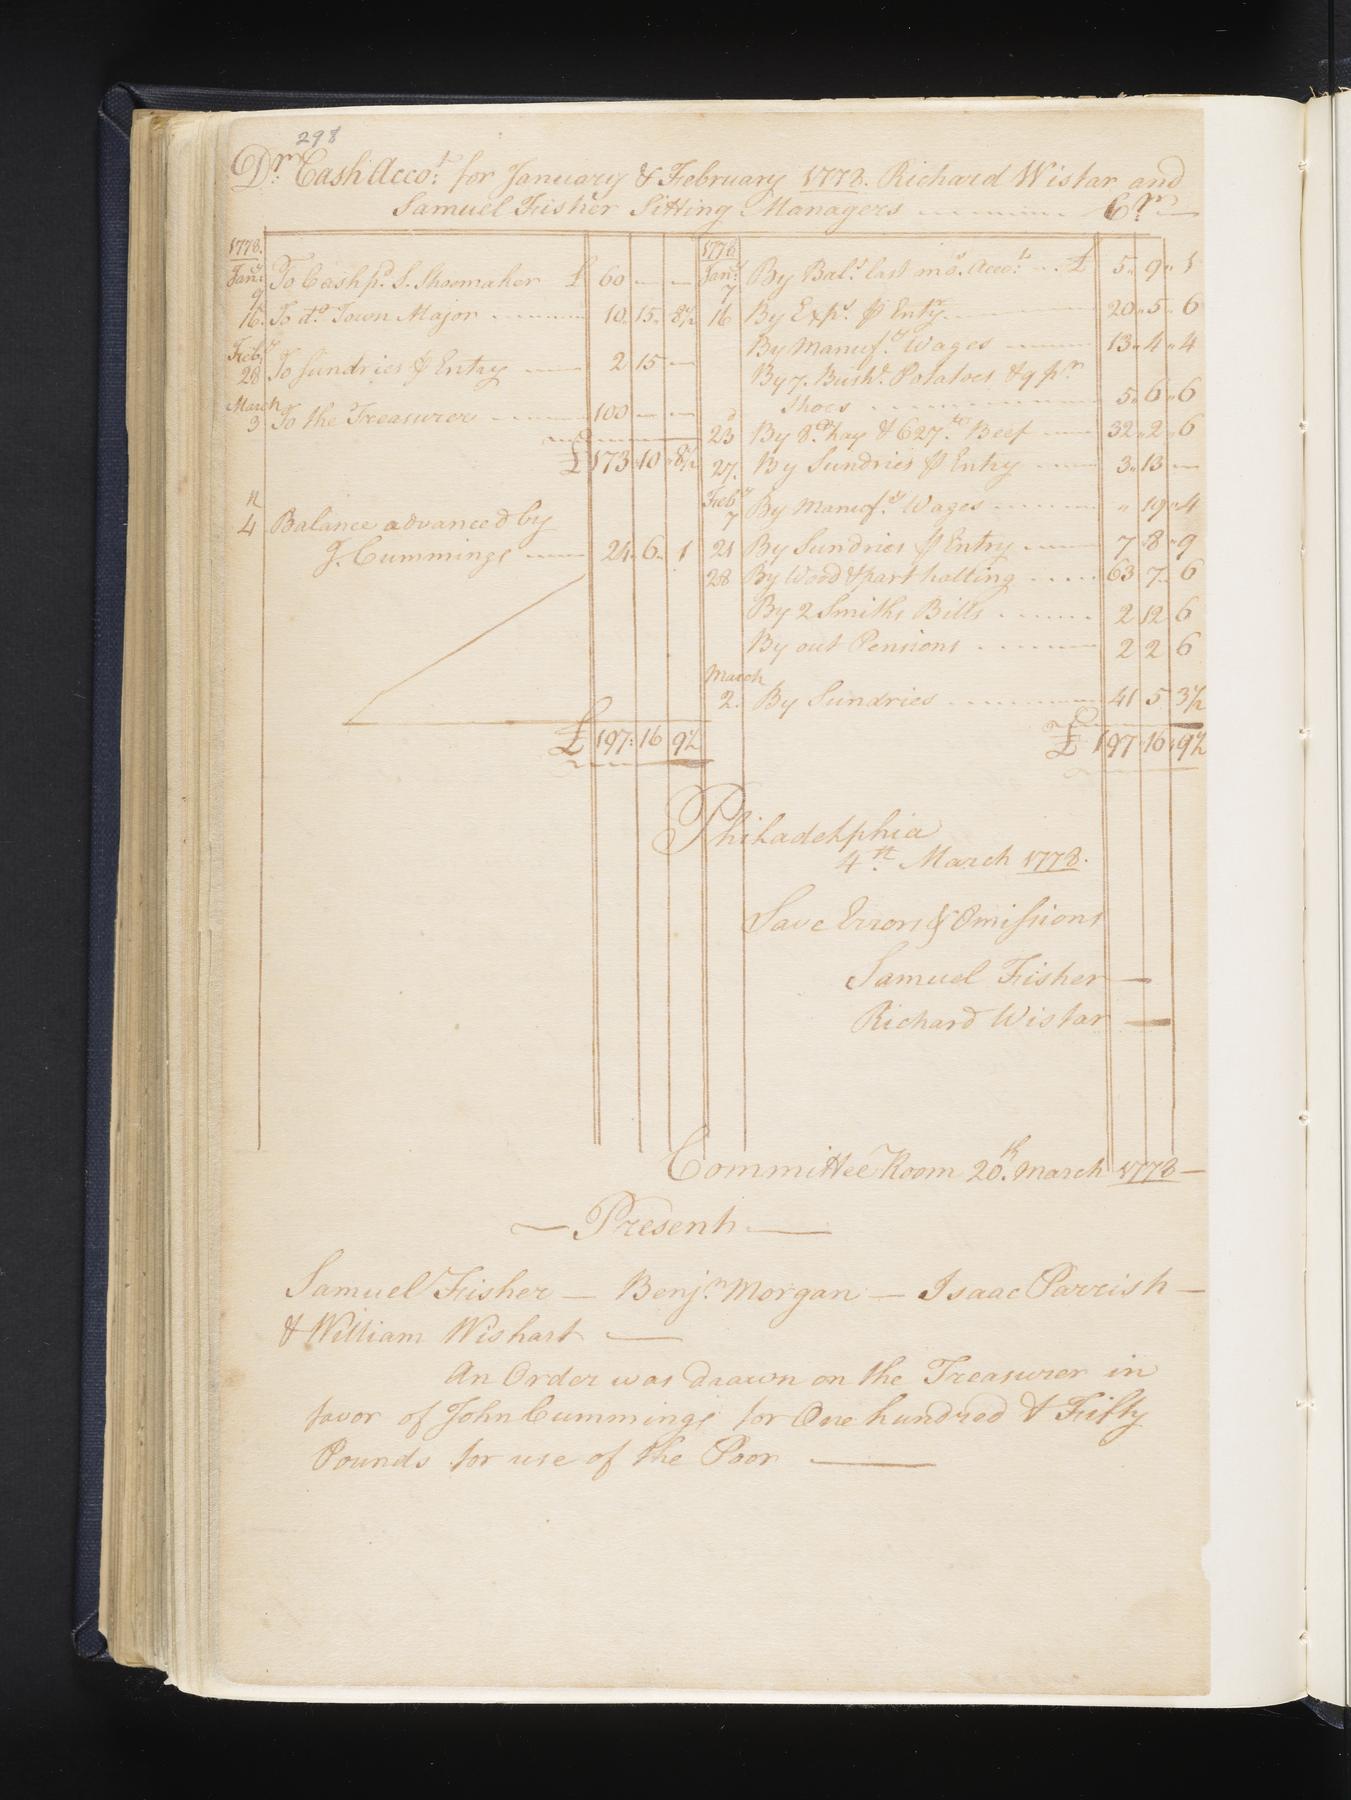 298
Dr. Cash Acco.t for January & February 1778. Richard Wistar and
Samuel Fisher Sitting Managers Cr.
1778.
Jan.y 9 To Cash p.d S. Shoemaker £ 60 — —
16. To d.o Town Major 10. 15. 8½
Feb.y 28 To Sundries ⅌ Entry 2 15 —
March 3 To the Treasurer 100 — —
£ 173 10 8½
4 Balance advanced by
J. Cummings 24. 6. 1
£ 197: 16 9½
1778
Jan.y 7 By Bal.e last mo.s Acco.t £ 5. 9. 1
16 By Exp.s ⅌ Entry 20. 5. 6
By Manuf.y Wages 13. 4. 4
By 7. Bush.s Potatoes & 9 p.r
Shoes 5. 6. 6
23 By 8.Ct hay & 627.lb Beef 32. 2. 6
27. By Sundries ⅌ Entry 3. 13 —
Feb.y 7 By Manuf.y Wages " 19. 4
21 By Sundries ⅌ Entry 7. 8. 9
28 By Wood & part halling 63 7. 6
By 2 Smiths Bills 2 12 6
By out Pensions 2 2 6
March
2. By Sundries 41 5 3½
£ 197 16 9½
Philadelphia
4th March 1778.
Save Errors & Omissions
Samuel Fisher —
Richard Wistar —
Committee Room 20.th March 1778 —
— Present —
Samuel Fisher — Benj.n Morgan — Isaac Parrish —
& William Wishart —
An Order was drawn on the Treasurer in
favor of John Cummings for One hundred & Fifty
Pounds for use of the Poor —